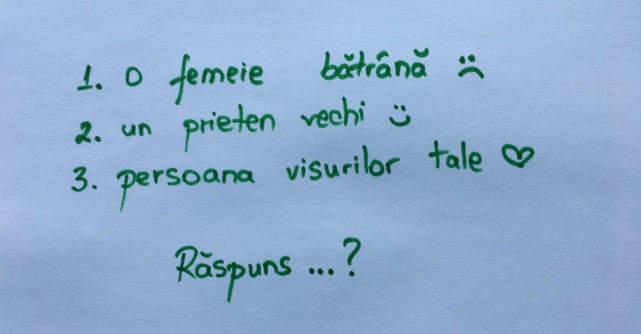 1. O femeie bătrână :(
2. un prieten vechi :)
3. persoana visurilor tale ♡
Răspuns ...?